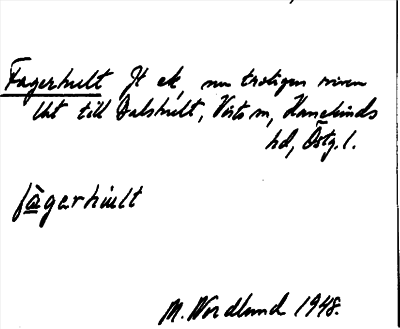 Fagerhult Jt ek, nu troligen riven
lht till Dalshult, Vists sn, Hanekinds
hd, Östg. l.
fàgerhult
M. Nordlund 1948.